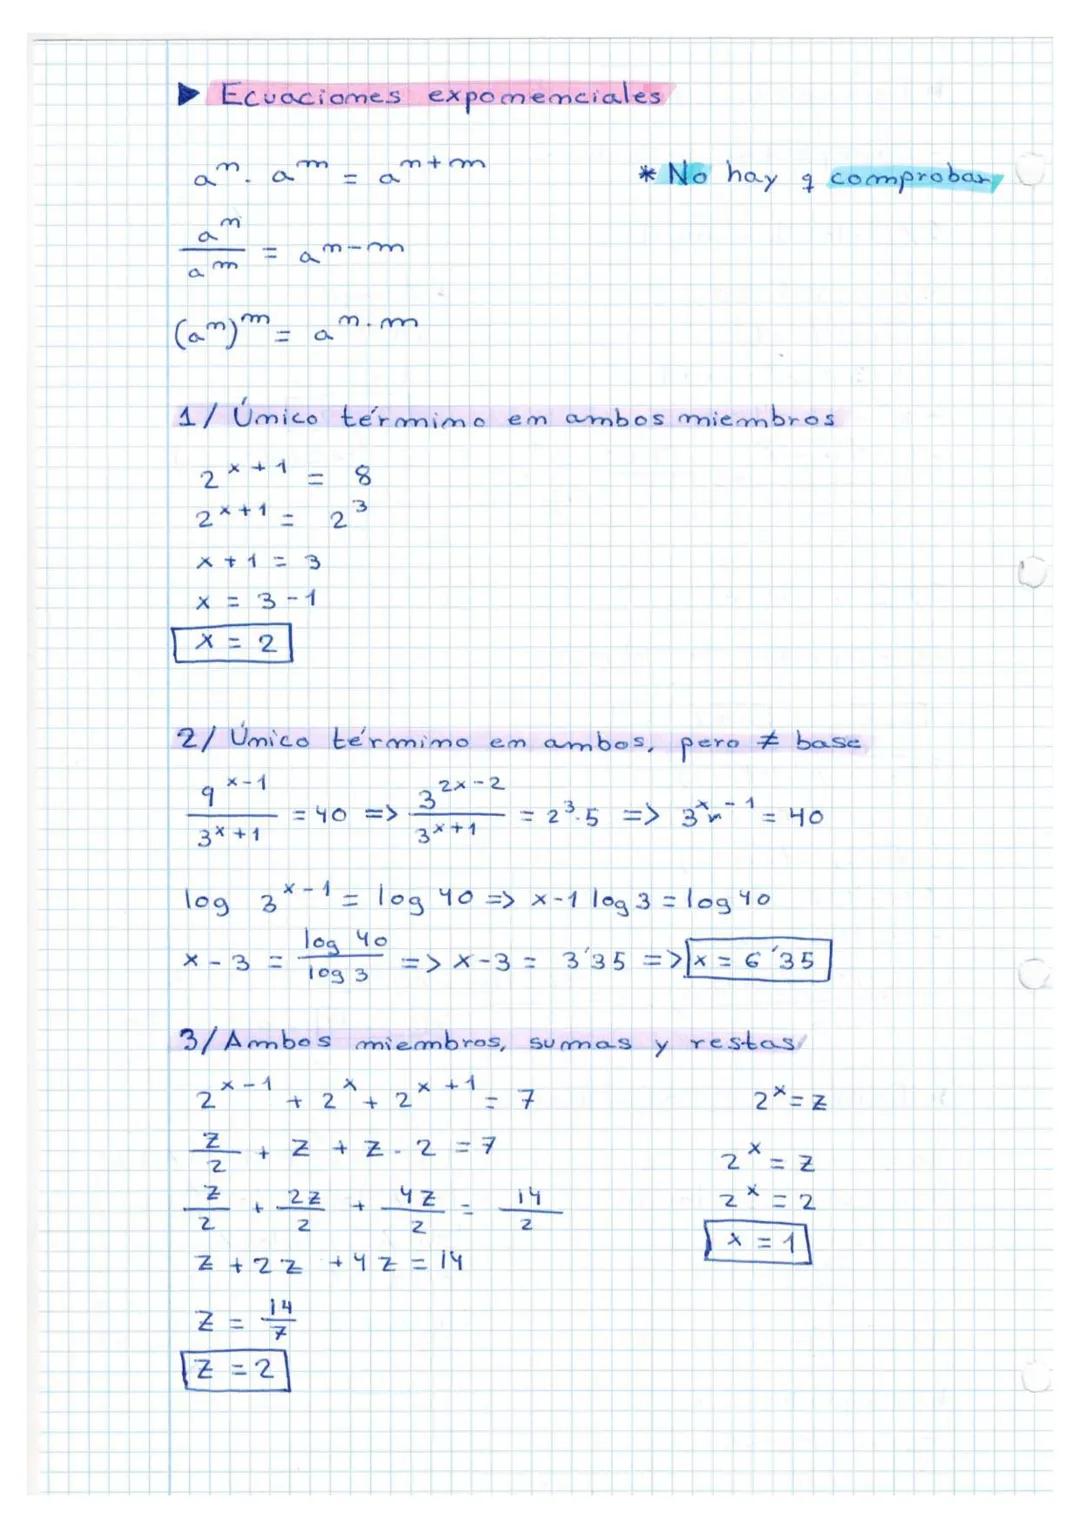 ▶ Ecuaciones exponenciales
a^n · a^m = a^(n+m)
* No hay q comprobar
a^n / a^m = a^(n-m)
(a^n)^m = a^(n·m)
1/ Único término en ambos miembros
2^(x+1) = 8
2^(x+1) = 2^3
x + 1 = 3
x = 3 - 1
x = 2
2/ Único término en ambos, pero ≠ base
9^(x-1) / 3^(x+1) = 40 => 3^(2x-2) / 3^(x+1) = 2^3·5 => 3^(x-1) = 40
log 3^(x-1) = log 40 => x-1 log 3 = log 40
x - 3 = log 40 / log 3 => x-3 = 3'35 => x = 6'35
3/ Ambos miembros, sumas y restas
2^(x-1) + 2^x + 2^(x+1) = 7
z/2 + z + z · 2 = 7
z/2 + 2z/2 + 4z/2 = 14/2
z + 2z + 4z = 14
z = 14/7
z = 2
2^x = z
2^x = z
2^x = 2
x = 1